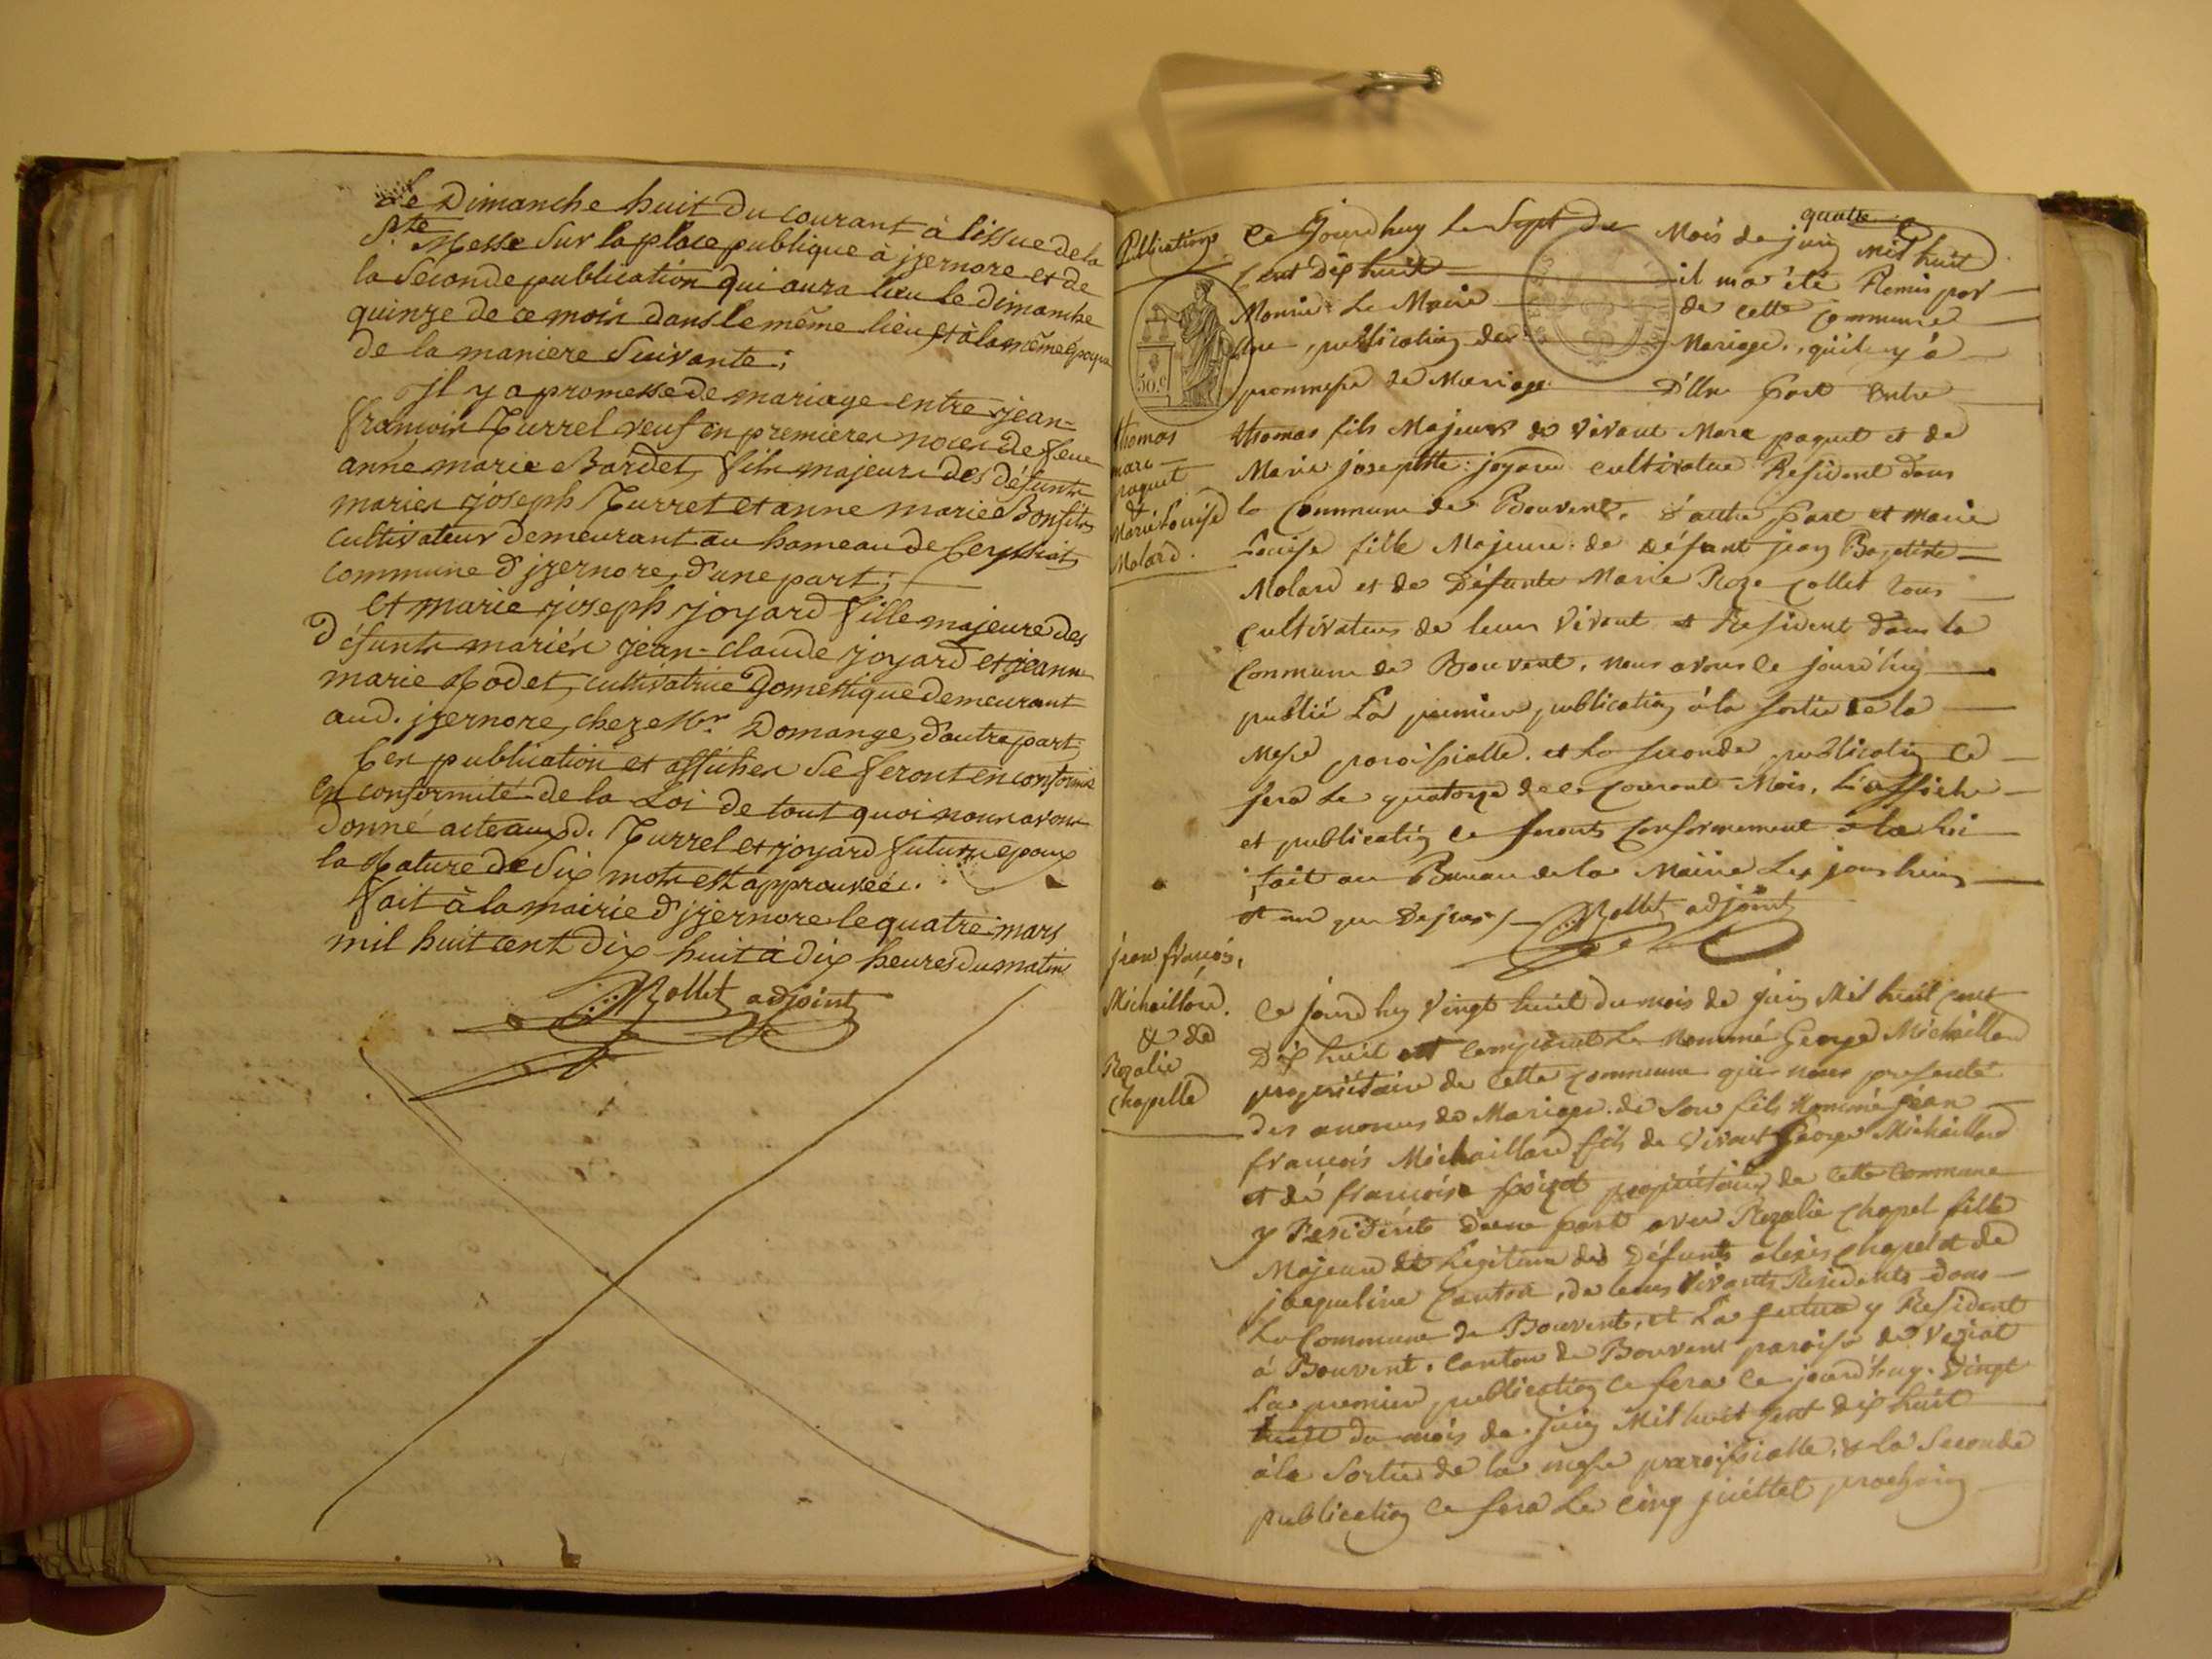 Le Dimanche huit Du courant à lissue de la
Ste Messe Sur la place publique à jzernore et de
la Seconde publication qui aura lieu le dimanche
quinze de ce mois dans le même lieu et à la même Epoque
de la maniere Suivante ;
jl y a promesse de mariage entre jean-
francois Turrel veuf en premieres noces de feue
anne marie Bardet, fils majeur des défunts
mariés joseph Turrel et anne marie Bonfils
cultivateur demeurant au hameau de Ceyssiat
commune d'jzernore, d'une part ;
et marie joseph joyard fille majeure des
défunts mariés jean-claude joyard et jeanne
marie Rodet, cultivatrice Domestique demeurant
aud. jzernore, chez Mr. Domange, d'autre part.
Ces publication et affiches se feront en conformité
en conformité de la Loi de tout quoi nous avons
donné acte auxd. Turrel et joyard futurs epoux
la Rature de Six mots est approuvée.
fait à la mairie d'jzernore le quatre mars
mil huit cent dix huit à dix heures du matin
Rollet adjoint
Publications
Thomas
marc
paquet
&
Marie Louise
Molard.
50 c
quatre
Ce Jourdhuy le Sept du Mois de juin mil huit
Cent Dix huit il ma été Remis par
Monsir. Le Maire de cette Commune
Une publication des Mariage, qu'il y à
prommesse de Mariage D'Une part entre
Thomas fils Majeur de vivant Marc paquet et de
Marie josephte joyard cultivateur Resident dans
la Commune de Bouvent, d'autre part et Marie
Louise fille Majeure de défunt jean Baptiste
Molard et de Défunte Marie Roze Collet tous
Cultivateurs de leurs Vivant et Resident dans la
Commune de Bouvent, nous avons ce jourd'huy
publié La premiere publication à la sortie de la
Messe paroissialle, et la seconde publication Ce
fera Le quatorze de ce Courant Mois, L'affiche
et publication ce feronts Conformement à la Loi
fait au Bureau de la Mairie Les jour
et an que Dessus /. Rollet adjoint
jean françois,
Michaillard.
& de
Rozalie
Chapelle
Ce jourdhuy Vingt huit du mois de juin Mil huit Cent
Dix huit est comparut Le Nommé George Michaillard
propriétaire de cette Commune qui nous presente
des anonces de Mariage de Son fils Nommé jean
françois Michaillard fils de Vivant George Michaillard
et de françoise propriétaires de cette Commune
y Residents d'une part avec Rozalie Chapel fille
Majeure et Legitime des Défunts alexis Chapel et de
jacqueline , de leurs Vivants Residents dans
La Commune de Bouvent, et La future y Resident
à Bouvent. Canton de Bouvent paroisse de Veziat
La premiere publication ce fera ce jourd'huy Vingt
huit du mois de juin Mil huit Cent dix huit
à la Sortie de la messe paroissialle, & la Seconde
publication Ce fera Le Cinq juillet prochain